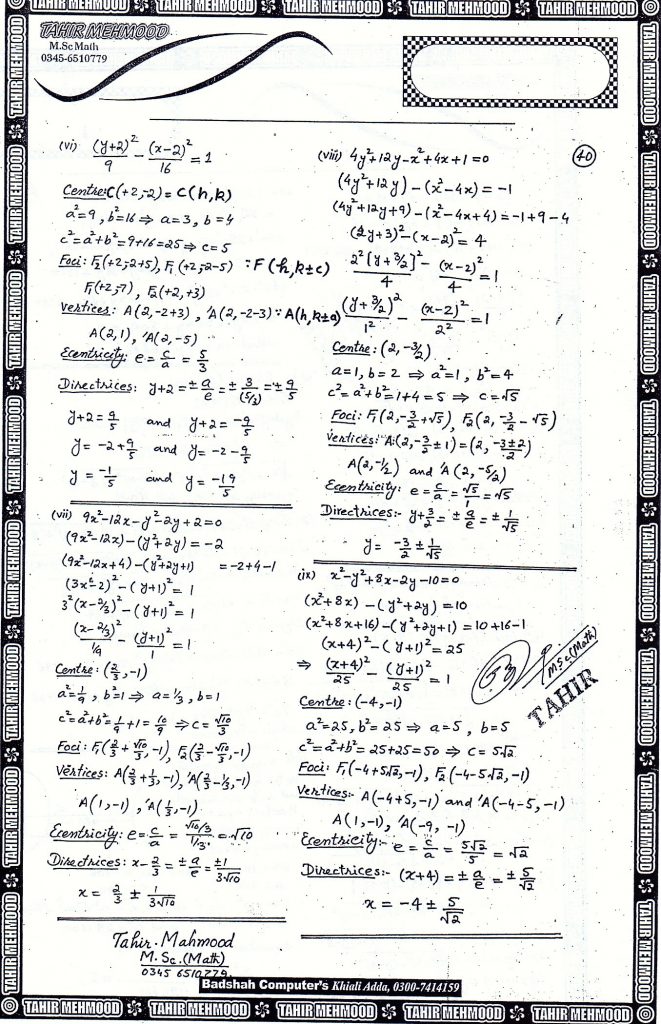 TAHIR MEHMOOD TAHIR MEHMOOD TAHIR MEHMOOD TAHIR MEHMOOD TAHIR MEHMOOD
TAHIR MEHMOOD
M.Sc Math
0345-6510779
(vi) (y+2)²/9 - (x-2)²/16 = 1
Centre: C(+2,-2) = C(h,k)
a²=9, b²=16 ⇒ a=3, b=4
c²=a²+b²=9+16=25 ⇒ c=5
Foci: F₂(+2,-2+5), F₁(+2,-2-5) ∵ F(h,k±c)
F₁(+2,-7), F₂(+2,+3)
Vertices: A(2,-2+3), 'A(2,-2-3) ∵ A(h,k±a)
A(2,1), 'A(2,-5)
Ecentricity: e = c/a = 5/3
Directrices: y+2 = ± a/e = ± 3/(5/3) = ± 9/5
y+2 = 9/5 and y+2 = -9/5
y = -2+9/5 and y = -2-9/5
y = -1/5 and y = -19/5
(vii) 9x²-12x-y²-2y+2=0
(9x²-12x)-(y²+2y) = -2
(9x²-12x+4)-(y²+2y+1) = -2+4-1
(3x-2)²-(y+1)² = 1
3²(x-2/3)²-(y+1)² = 1
(x-2/3)²/(1/9) - (y+1)²/1 = 1
Centre: (2/3,-1)
a²=1/9, b²=1 ⇒ a=1/3, b=1
c²=a²+b²=1/9+1=10/9 ⇒ c=√10/3
Foci: F₁(2/3+√10/3,-1), F₂(2/3-√10/3,-1)
Vertices: A(2/3+1/3,-1), 'A(2/3-1/3,-1)
A(1,-1), 'A(1/3,-1)
Ecentricity: e = c/a = (√10/3)/(1/3) = √10
Directrices: x-2/3 = ± a/e = ±1/3√10
x = 2/3 ± 1/3√10
Tahir. Mahmood
M. Sc. (Math)
0345 6510779
(viii) 4y²+12y-x²+4x+1=0
40
(4y²+12y)-(x²-4x) = -1
(4y²+12y+9)-(x²-4x+4) = -1+9-4
(2y+3)²-(x-2)² = 4
2²[y+3/2]²/4 - (x-2)²/4 = 1
(y+3/2)²/1² - (x-2)²/2² = 1
Centre: (2,-3/2)
a=1, b=2 ⇒ a²=1, b²=4
c²=a²+b²=1+4=5 ⇒ c=√5
Foci: F₁(2,-3/2+√5), F₂(2,-3/2-√5)
Vertices: A:(2,-3/2±1) = (2,-3±2/2)
A(2,-1/2) and 'A(2,-5/2)
Ecentricity: e = c/a = √5/1 = √5
Directrices:- y+3/2 = ± a/e = ± 1/√5
y = -3/2 ± 1/√5
(ix) x²-y²+8x-2y-10=0
(x²+8x)-(y²+2y) = 10
(x²+8x+16)-(y²+2y+1) = 10+16-1
(x+4)²-(y+1)² = 25
⇒ (x+4)²/25 - (y+1)²/25 = 1
M.Sc(Math)
TAHIR
Centre: (-4,-1)
a²=25, b²=25 ⇒ a=5, b=5
c²=a²+b²=25+25=50 ⇒ c=5√2
Foci: F₁(-4+5√2,-1), F₂(-4-5√2,-1)
Vertices:- A(-4+5,-1) and 'A(-4-5,-1)
A(1,-1), 'A(-9,-1)
Ecentricity:- e = c/a = 5√2/5 = √2
Directrices:- (x+4) = ± a/e = ± 5/√2
x = -4 ± 5/√2
Badshah Computer's Khiali Adda, 0300-7414159
TAHIR MEHMOOD TAHIR MEHMOOD TAHIR MEHMOOD TAHIR MEHMOOD TAHIR MEHMOOD